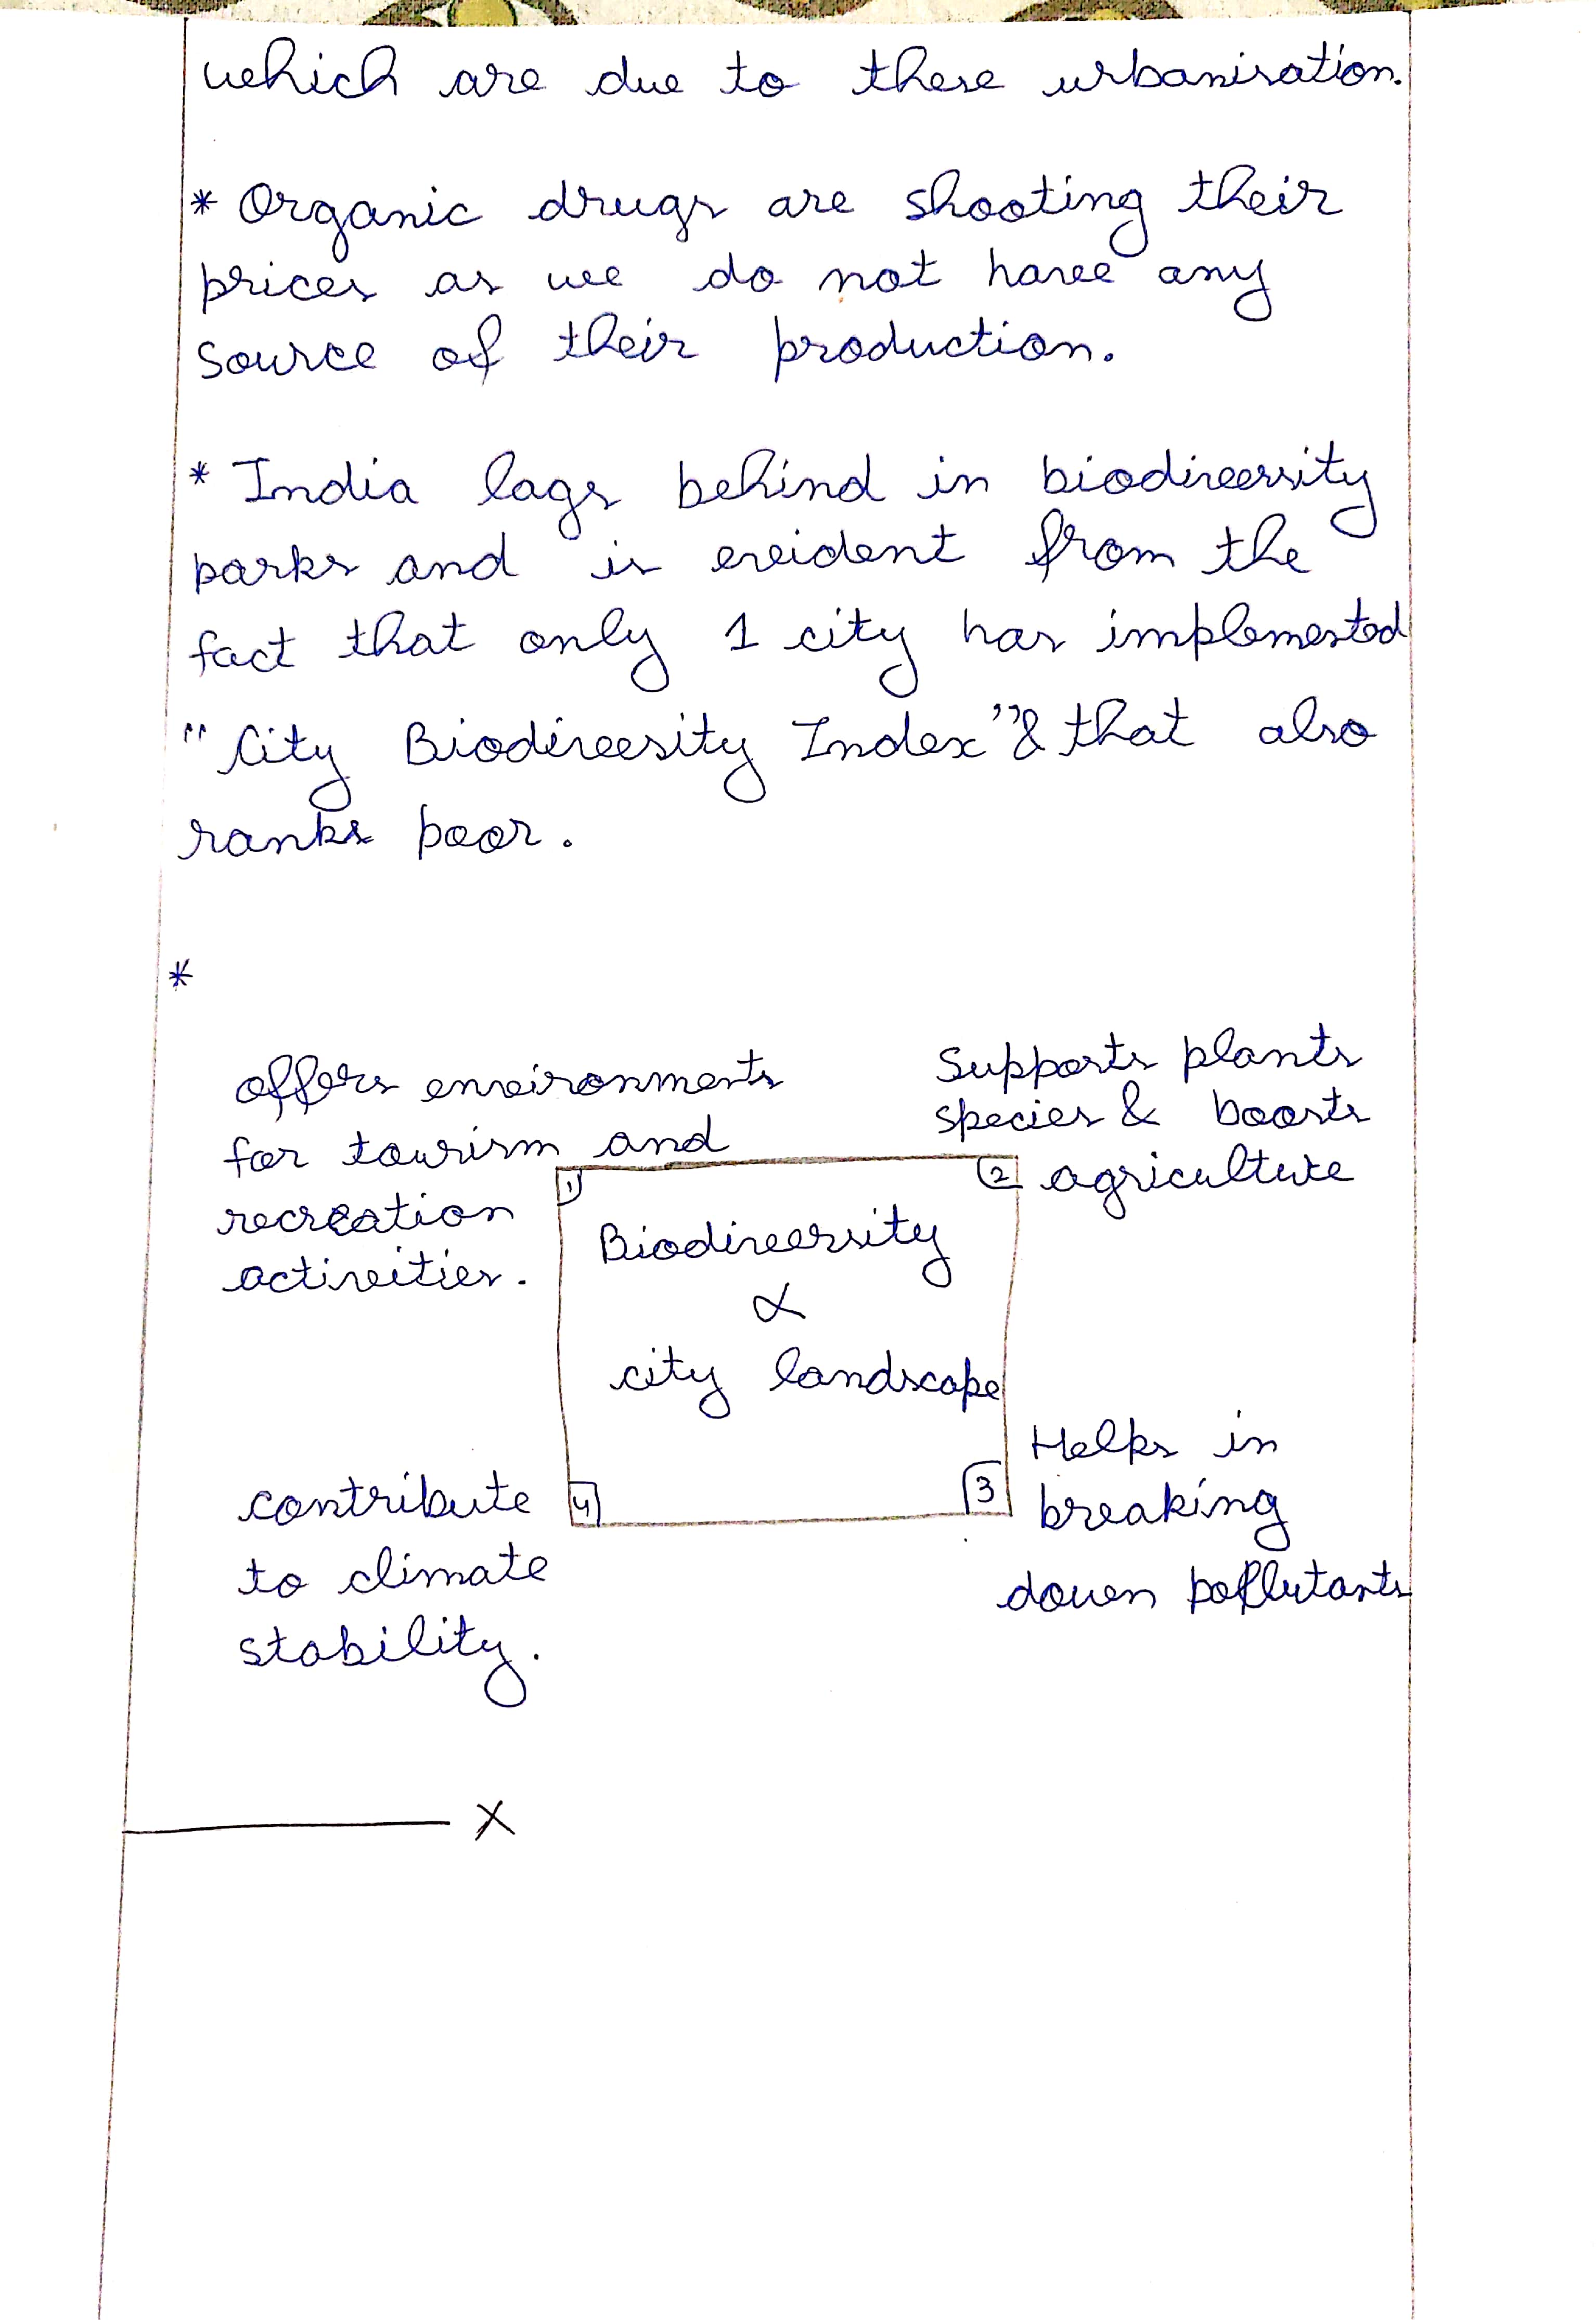 which are due to these urbanisation.
* Organic drugs are shooting their
prices as we do not have any
source of their production.
* India lags behind in biodiversity
parks and is evident from the
fact that only 1 city has implemented
"City Biodivesity Index" & that also
ranks poor.
*
offers environments
for tourism and
recreation
activities.
Supports plants
species & boosts
agriculture
1
2
Biodiversity
&
city landscape
3
4
Helps in
breaking
down pollutants
contribute
to climate
stability.
X